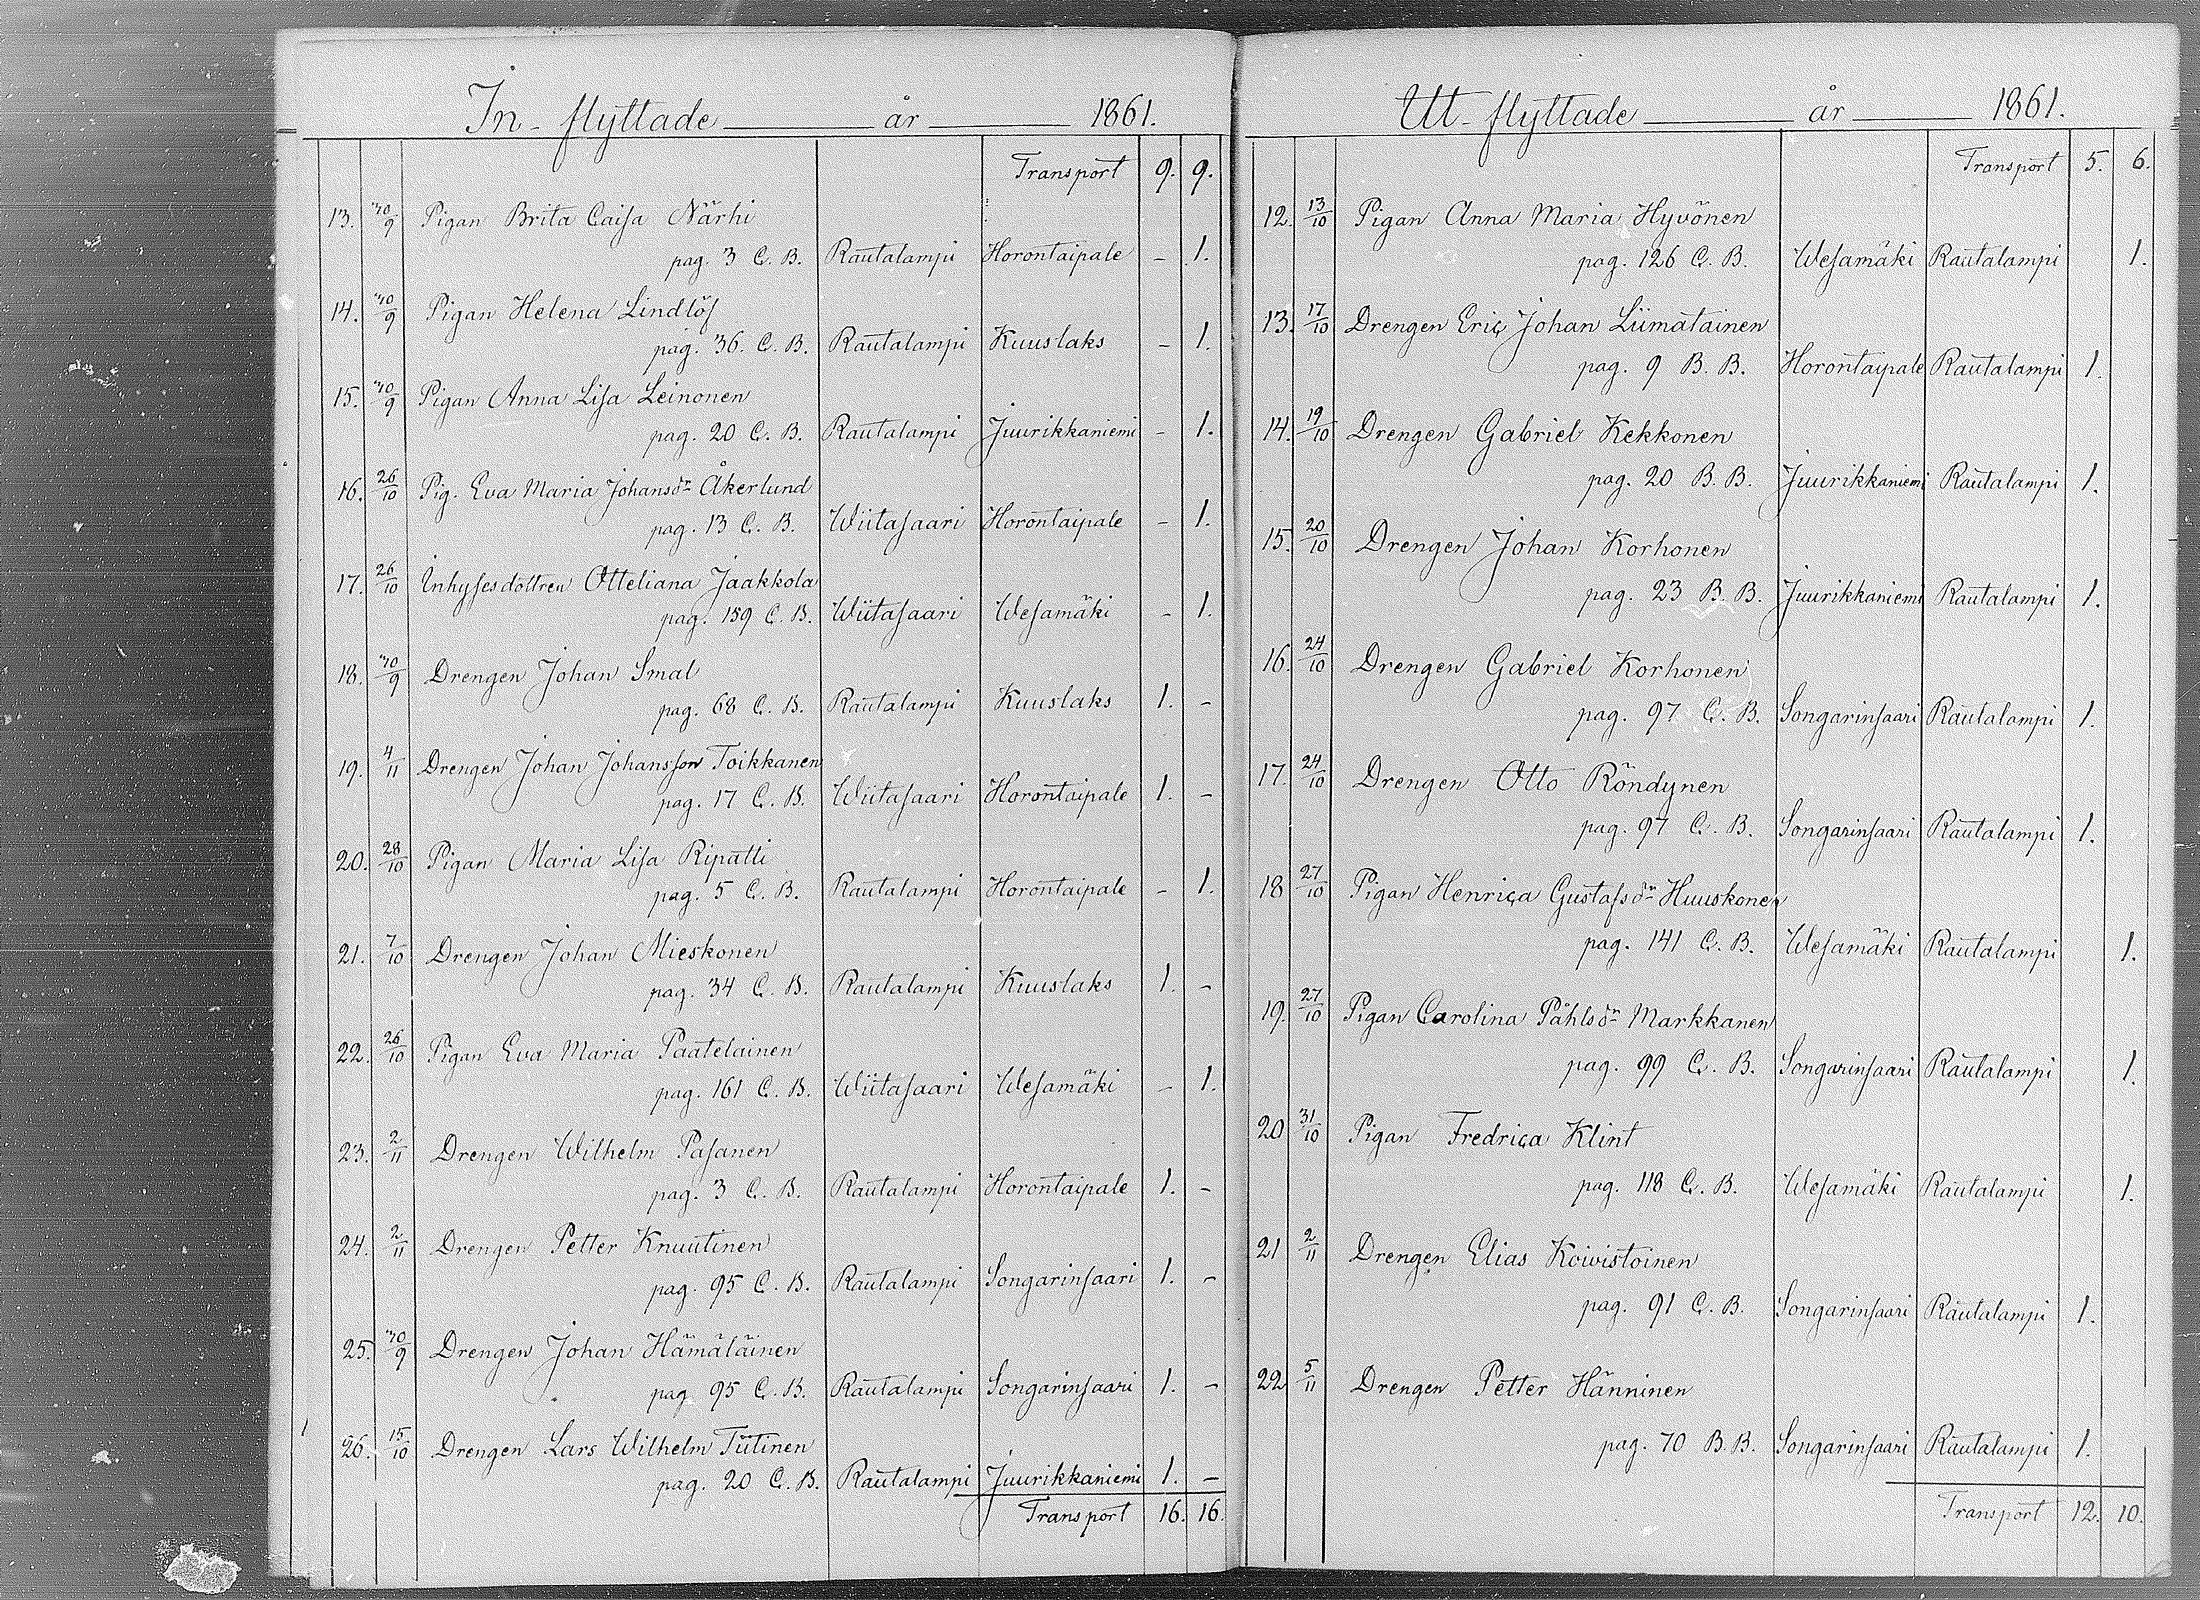 In-flyttade år 1861.
Transport 9. 9.
13. 30/9 Pigan Brita Caisa Närhi
pag. 3 C. B. Rautalampi Horontaipale - 1.
14. 30/9 Pigan Helena Lindlöf
pag. 36. C. B. Rautalampi Kuuslaks - 1.
15. 30/9 Pigan Anna Lisa Leinonen
pag. 20 C. B. Rautalampi Juurikkaniemi - 1.
16. 26/10 Pig. Eva Maria Johansdr Åkerlund
pag. 13 C. B. Wiitasaari Horontaipale - 1.
17. 26/10 Inhysesdottren Otteliana Jaakkola
pag. 159 C. B. Wiitasaari Wesamäki - 1.
18. 30/9 Drengen Johan Smal
pag. 68 C. B. Rautalampi Kuuslaks 1. -
19. 4/11 Drengen Johan Johansson Toikkanen
pag. 17 C. B. Wiitasaari Horontaipale 1. -
20. 28/10 Pigan Maria Lisa Ripatti
pag. 5 C. B. Rautalampi Horontaipale - 1.
21. 7/10 Drengen Johan Mieskonen
pag. 34 C. B. Rautalampi Kuuslaks 1. -
22. 26/10 Pigan Eva Maria Paatelainen
pag. 161 C. B. Wiitasaari Wesamäki - 1.
23. 2/11 Drengen Wilhelm Pasanen
pag. 3 C. B. Rautalampi Horontaipale 1. -
24. 2/11 Drengen Petter Knuutinen
pag. 95 C. B. Rautalampi Songarinsaari 1. -
25. 30/9 Drengen Johan Hämäläinen
pag. 95 C. B. Rautalampi Songarinsaari 1. -
26. 15/10 Drengen Lars Wilhelm Tiitinen
pag. 20 C. B. Rautalampi Juurikkaniemi 1. -
Transport 16. 16.
Ut-flyttade år 1861.
Transport 5. 6.
12. 13/10 Pigan Anna Maria Hyvönen
pag. 126 C. B. Wesamäki Rautalampi 1.
13. 17/10 Drengen Eric Johan Liimatainen
pag. 9 B. B. Horontaipale Rautalampi 1.
14. 19/10 Drengen Gabriel Kekkonen
pag. 20 B. B. Juurikkaniemi Rautalampi 1.
15. 20/10 Drengen Johan Korhonen
pag. 23 B. B. Juurikkaniemi Rautalampi 1.
16. 24/10 Drengen Gabriel Korhonen
pag. 97 C. B. Songarinsaari Rautalampi 1.
17. 24/10 Drengen Otto Röndynen
pag. 97 C. B. Songarinsaari Rautalampi 1.
18 27/10 Pigan Henrica Gustafsdr Huuskonen
pag. 141 C. B. Wesamäki Rautalampi 1.
19. 27/10 Pigan Carolina Påhlsdr Markkanen
pag. 99 C. B. Songarinsaari Rautalampi 1.
20 31/10 Pigan Fredrica Klint
pag. 118 C. B. Wesamäki Rautalampi 1.
21 2/11 Drengen Elias Koivistoinen
pag. 91 C. B. Songarinsaari Rautalampi 1.
22 5/11 Drengen Petter Hänninen
pag. 70 B. B. Songarinsaari Rautalampi 1.
Transport 12. 10.